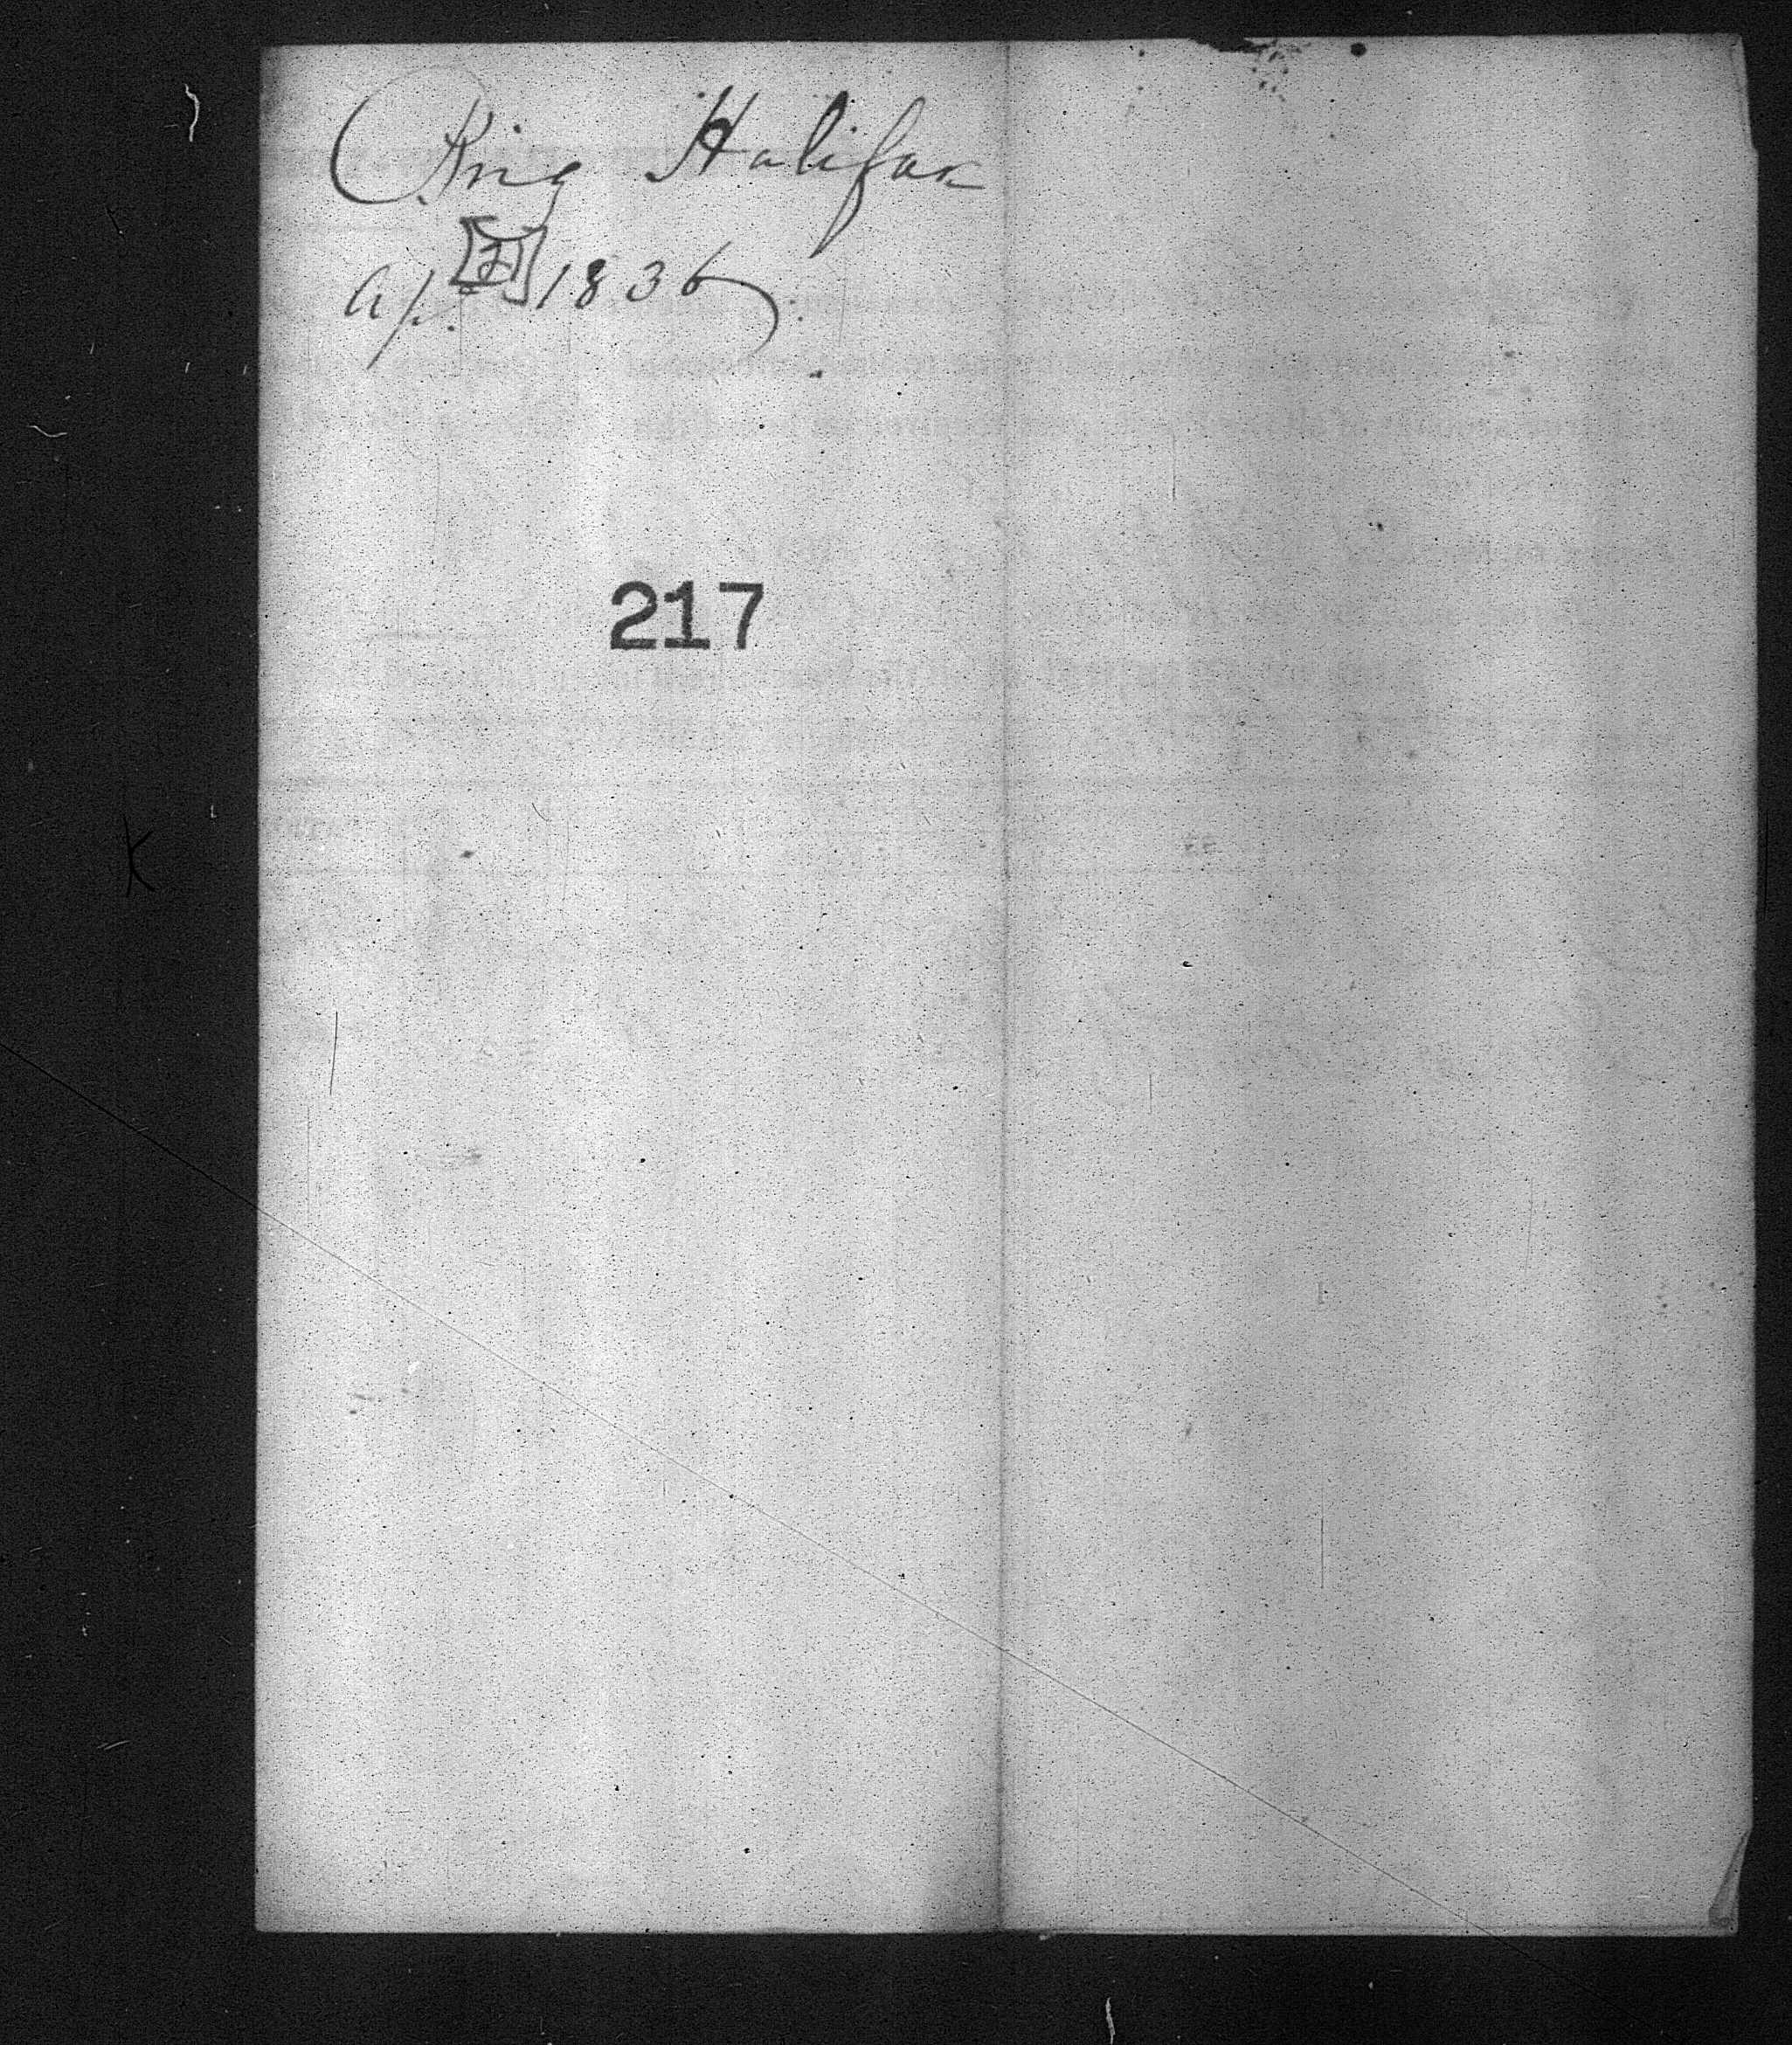 Brig Halifax
Ap. 1836
217